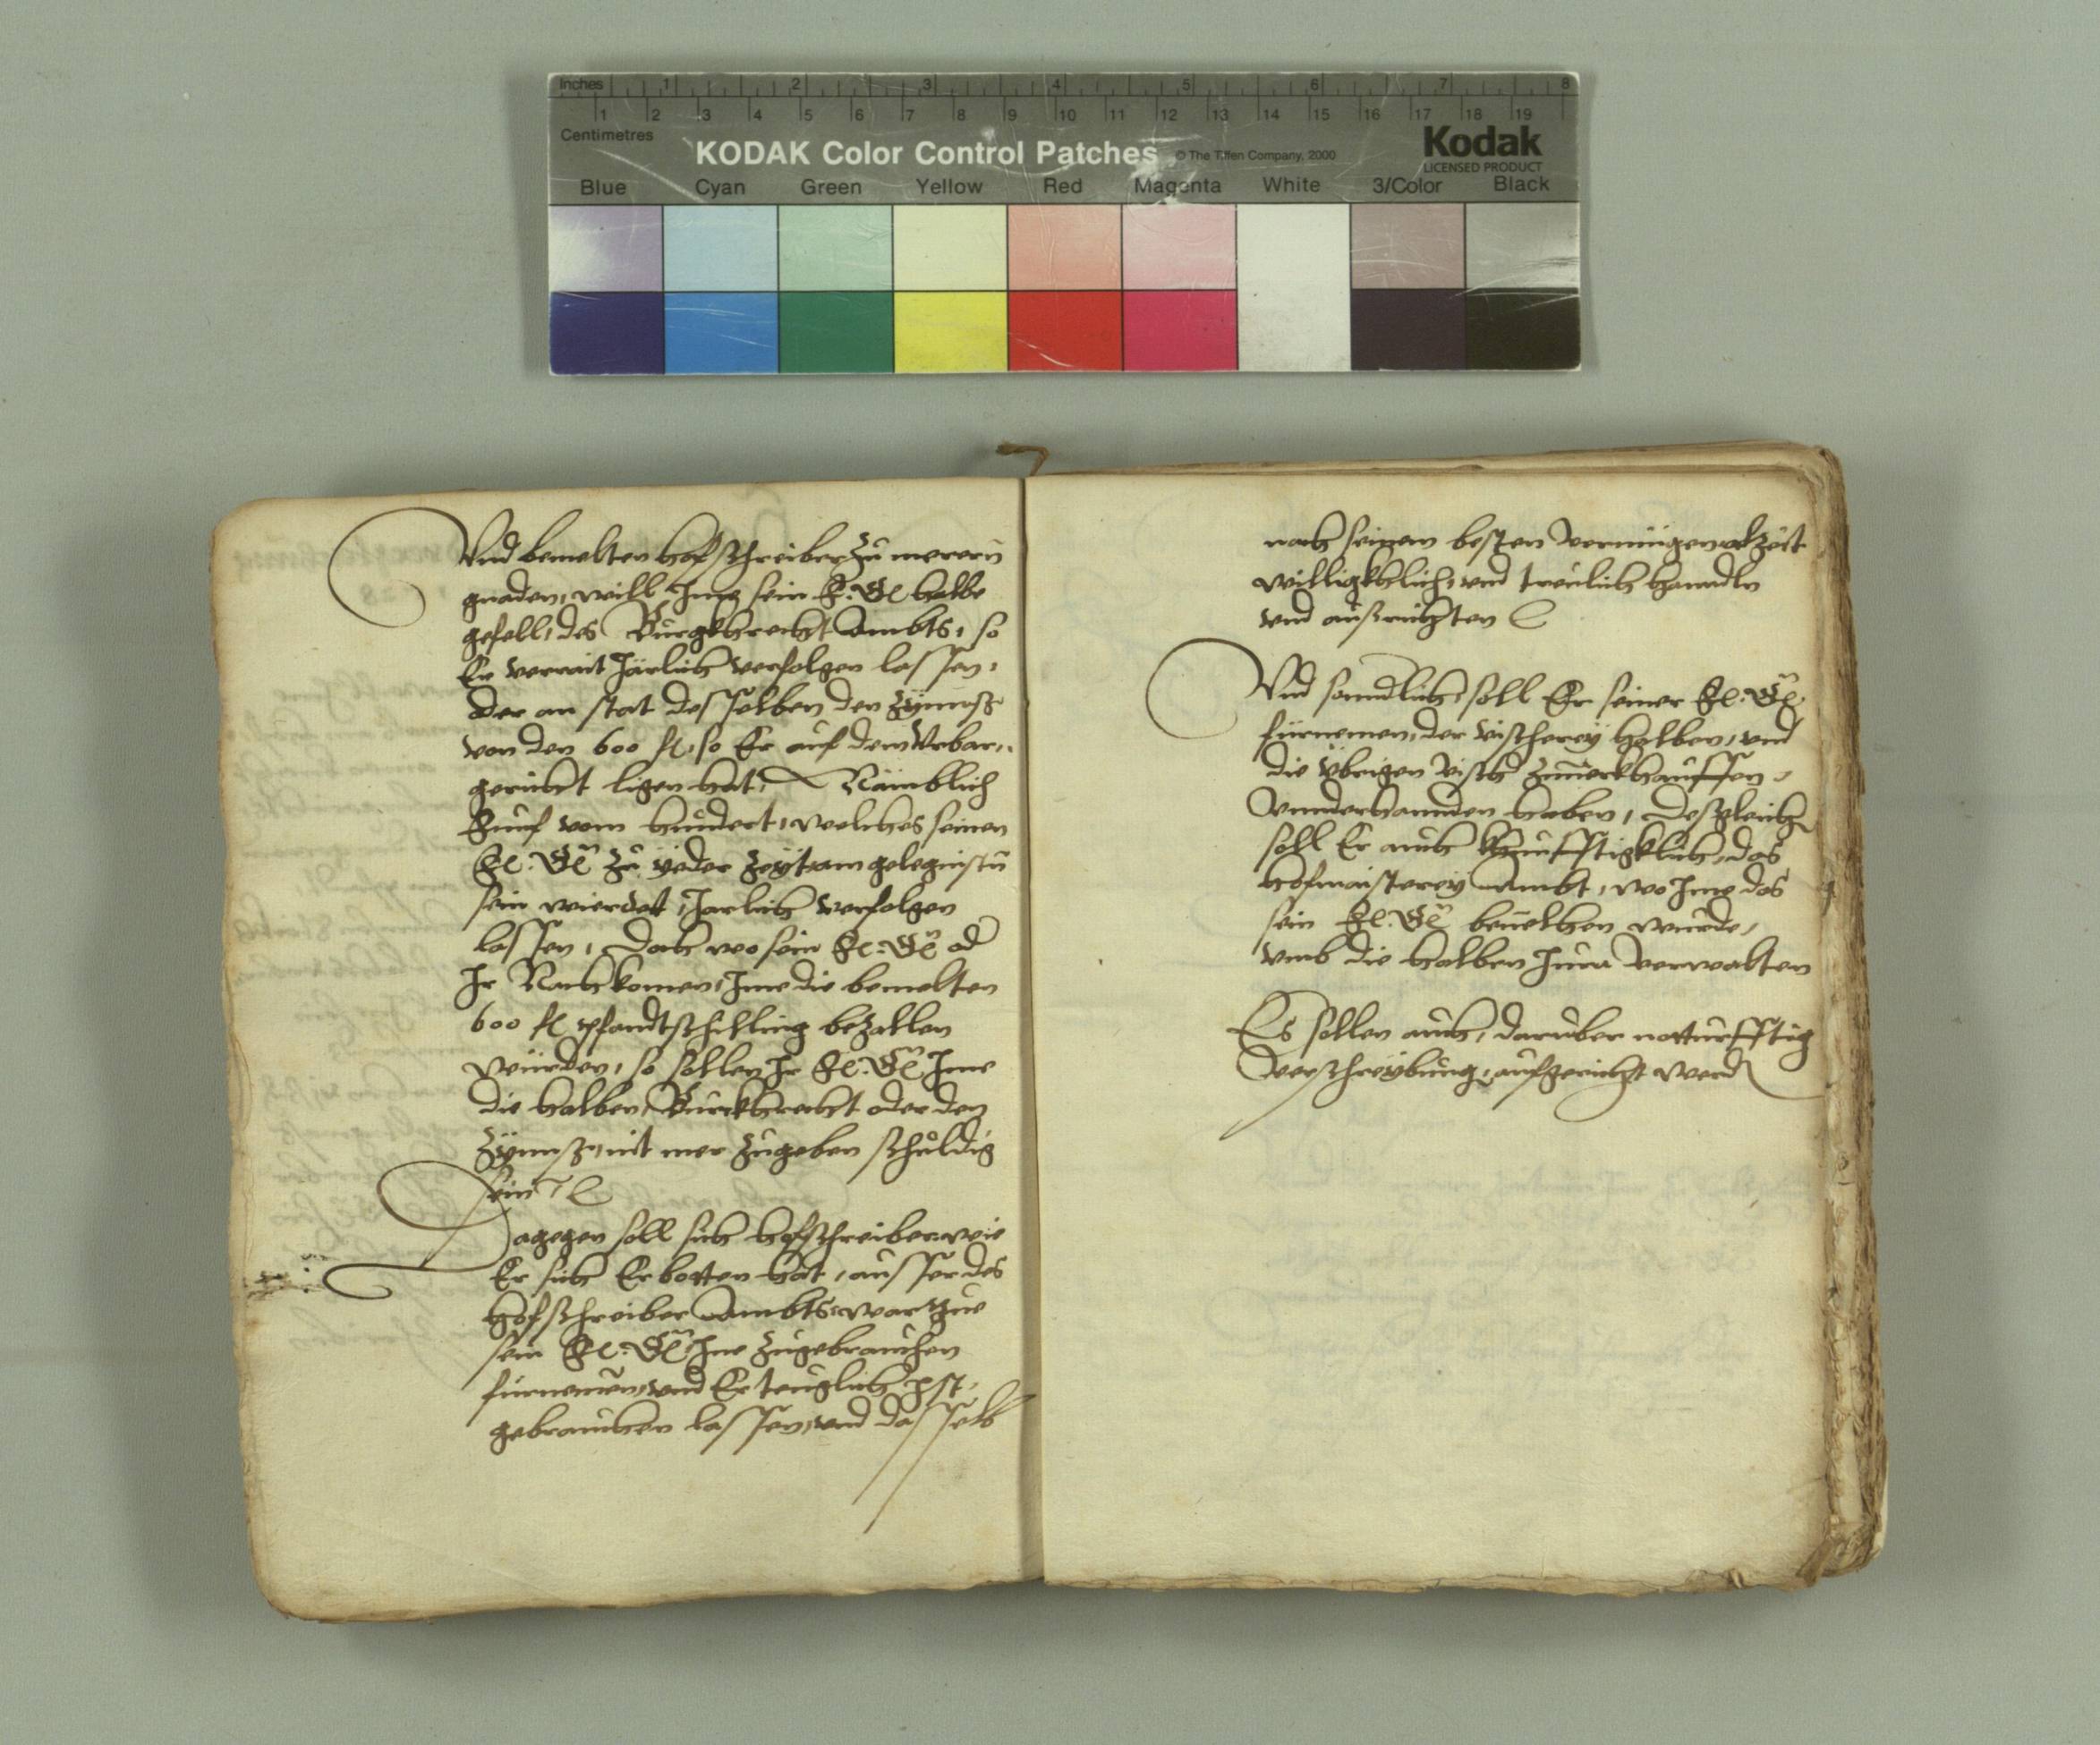 Inches 1 2 3 4 5 6 7 8
1 2 3 4 5 6 7 8 9 10 11 12 13 14 15 16 17 18 19
Centimetres
KODAK Color Control Patches © The Tiffen Company, 2000 Kodak
LICENSED PRODUCT
Blue Cyan Green Yellow Red Magenta White 3/Color Black
Vnd bemelten hofschreiber zu merern
gnaden, will Ime sein F. Gl halbe
gefell, des Burgkhrecht Ambts, so
Er verrait Järlich verfolgen lassen,
oder an stat desselben den Zÿnnß
von den 600 fl, so Er auf dem Vrbar,,
gericht ligen hat, Nämblich
Funf vom hundert, welches seinen
Fl. Gl zu yeder Zeyt am gelegnistn
sein wierdet, Jarlich verfolgen
lassen, Doch wo sein Fl. Gl od
Ir Nachkomen, Ime die bemelten
600 fl pfandtschilling bezallen
wurden, so sollen Ir Fl. Gl Ime
die halben Burckhrecht oder den
Zÿnnß, nit mer zugeben schuldig
sein
Dagegen soll sich hofschreiber wie
Er sich Erbotten hat, ausser des
hofschreiber Ambts, warzue
sein Fl. Gl Ine zugebrauchen
furnemen, vnd Er tauglich ist,
gebrauchen lassen, vnd dasselb
nach seinem besten vermügen alzeit
willigkhlich, vnd treulich hanndln
vnd außrichten
Vnd sonndlich, soll Er seiner Fl. Gl
fürnemen, der vischerey halben, vnd
die übrigen Visch zuuerkhauffen,
Vnnderhannden haben, Desgleich
soll Er auch khunfftigklich, das
hofmaisterey Ambt, wo Ime das
sein Fl. Gl beuelhen wurde,
vmb die halben verwalten
Es sollen auch, daruber notturfftig
Verschreybung, aufgericht werd